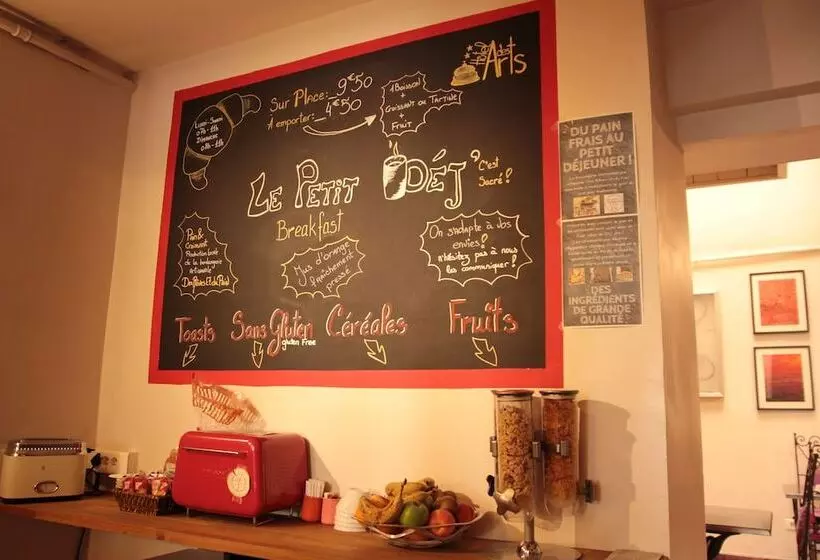 Lundi - Samedi
Dimanche
Sur Place: 9€50
A emporter: 4€50
1 Boisson
+
Croissant ou Tartine
+
Fruit
Arts
Le Petit Déj'
C'est
Sacré!
Breakfast
Pain &
Croissant
Production
de la boulangerie
Artisanale
Des Rêves Et du Pain
Jus d'orange
fraîchement
pressé
On s'adapte à vos
envies!
n'hésitez pas à nous
les communiquer!
Toasts
Sans Gluten
gluten Free
Céréales
Fruits
DU PAIN
FRAIS AU
PETIT
DÉJEUNER !
DES
INGRÉDIENTS
DE GRANDE
QUALITÉ